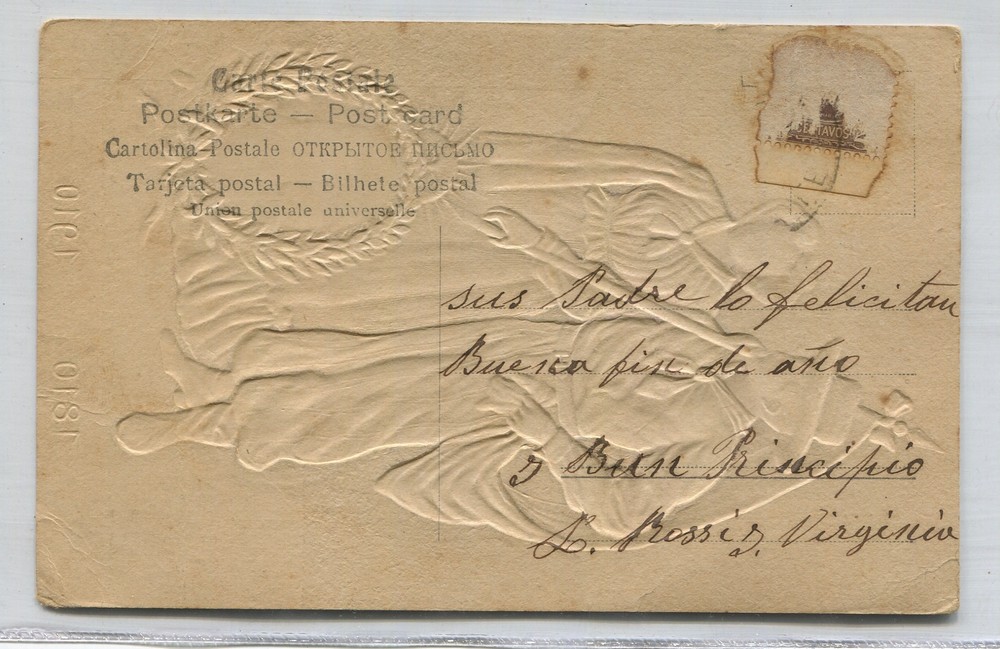 Carte Postale
Postkarte — Post card
Cartolina Postale ОТКРЫТОЕ ПИСЬМО
Tarjeta postal — Bilhete postal
Union postale universelle
CENTAVOS
1810 1910
sus Padre lo felicitan
Buena fin de año
y Buen Principio
L. Rossi y Virginia